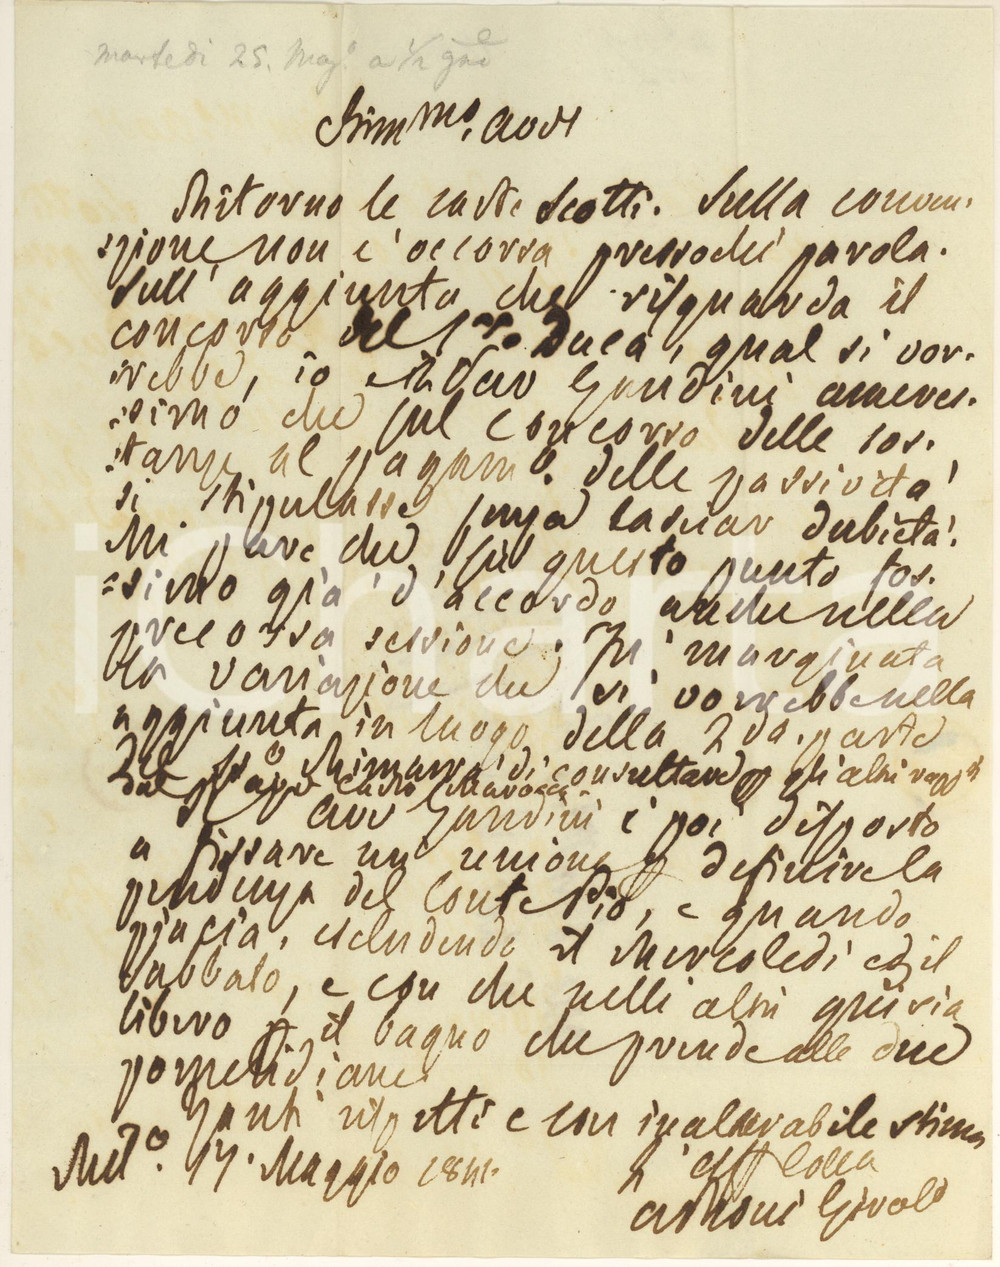 martedì 25. Mag.o a 1/2 g.ne
Stim.mo. Avv
Ritorno le carte Scotti. Sulla conven-
-zione non è occorsa pressoché parola.
Sull'aggiunta che risguarda il
concorso del Duca, qual si vor-
-rebbe, io e l'Avv Gandini ameres-
-simo che sul concorso delle sos-
-tanze al pagam.o delle passività
si stipulasse senza lasciar dubietà.
Mi pare che su questo punto fos-
-simo già d'accordo anche nella
precorsa sessione. Fu marginata
la variazione che si vorrebbe nella
aggiunta in luogo della 2da. parte
Rimarrà di consultare gli altri
L'avv Gandini è poi disposto
a fissare un unione p definire la
pendenza del Conte, e quando
piaccia, escludendo il Mercoledì ed il
Sabbato, e con che nelli altri gni sia
libero p il bagno che prende alle due
pomeridiane
Tanti rispetti e con inalterabile stima
Mil.o. 17. Maggio 1841.
L'aff Collega